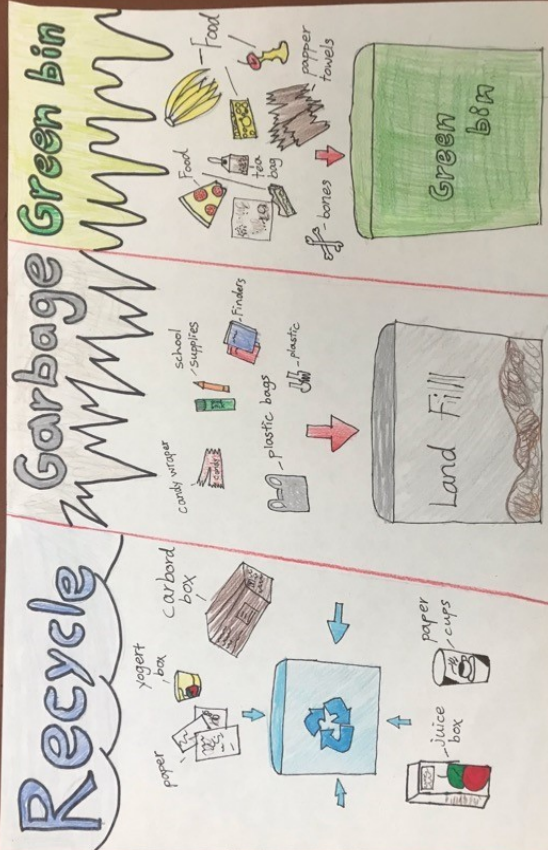 Recycle
paper
yogert
box
carbord
box
juice
box
paper
cups
Garbage
candy wraper
candy
school
supplies
Finders
plastic bags
plastic
Land Fill
Green bin
Food
Food
tea
bag
papper
towels
bones
Green
bin